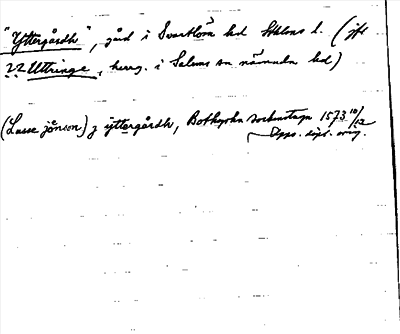 "Yttergårdh", gård i Svartlösa hd Sthlms l. (jfr
?? Uttringe, herrg. i Salems sn nämnda hd)
(Lasse jönson) j yttergårdh, Botkyrka sockenstuga 1573 10/12
Upps. dipl. orig.